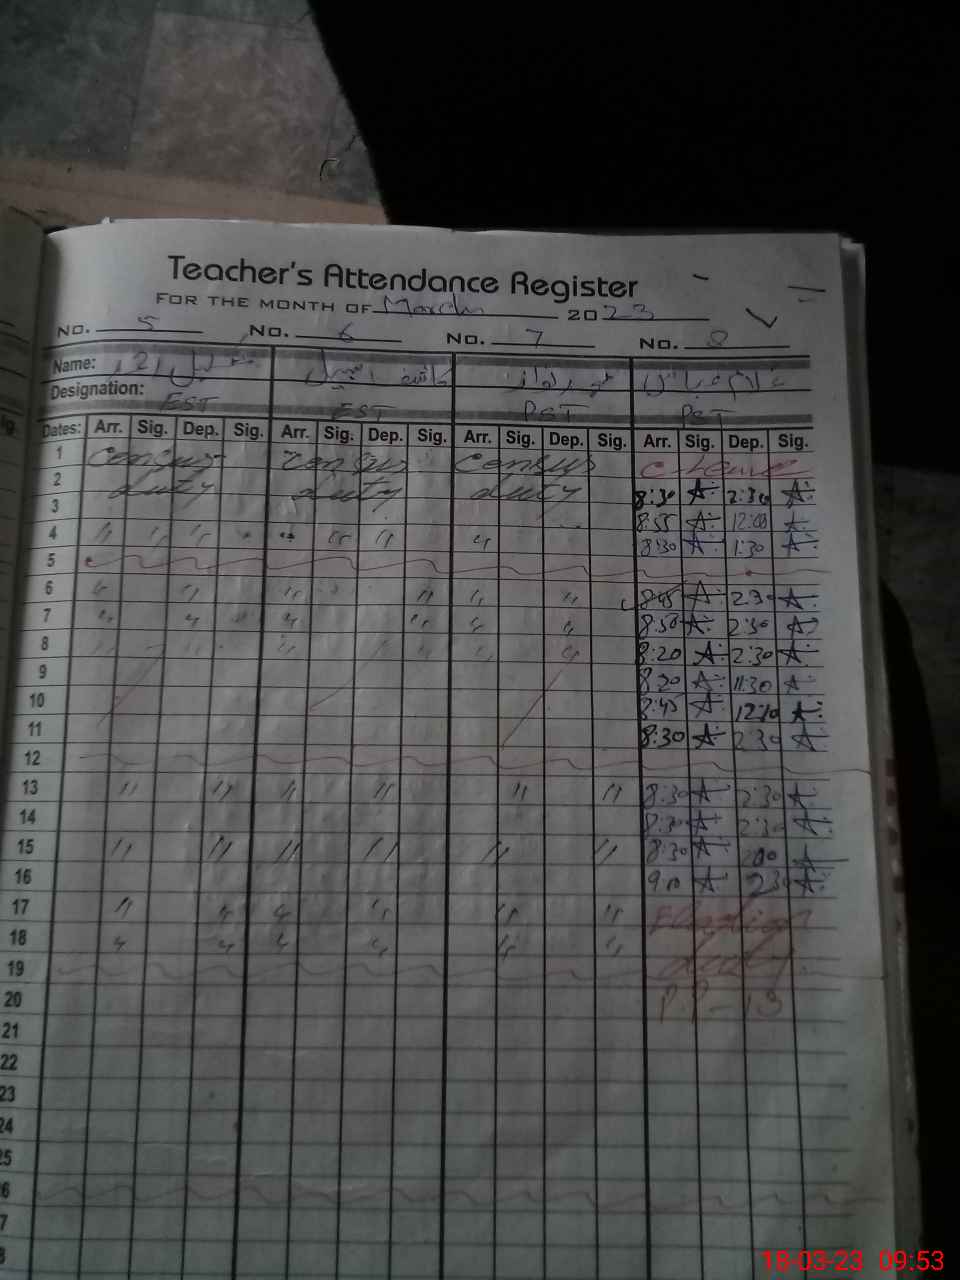 Teacher's Attendance Register
FOR THE MONTH OF March 2023
No. 5 No. 6 No. 7 No. 8
Name:
Designation: EST EST PST PST
Dates: Arr. Sig. Dep. Sig. Arr. Sig. Dep. Sig. Arr. Sig. Dep. Sig. Arr. Sig. Dep. Sig.
1 Census Census Census C. Leave
2 duty duty duty 8:30 2:30
3 8:55 12:00
4 " " " " " " 8:30 1:30
5
6 " " " " " " 8:45 2:30
7 " " " " " " 8:50 2:30
8 " " " " " " 8:20 2:30
9 8:20 11:30
10 8:45 12:10
11 8:30 2:30
12
13 " " " " " " 8:30 2:30
14 8:30 2:30
15 " " " " " " 8:30 2:00
16 9:10 2:30
17 " " " " " " Election
18 " " " " " " duty.
19
20 P.P-13
21
22
23
24
25
6
7
8
18-03-23 09:53